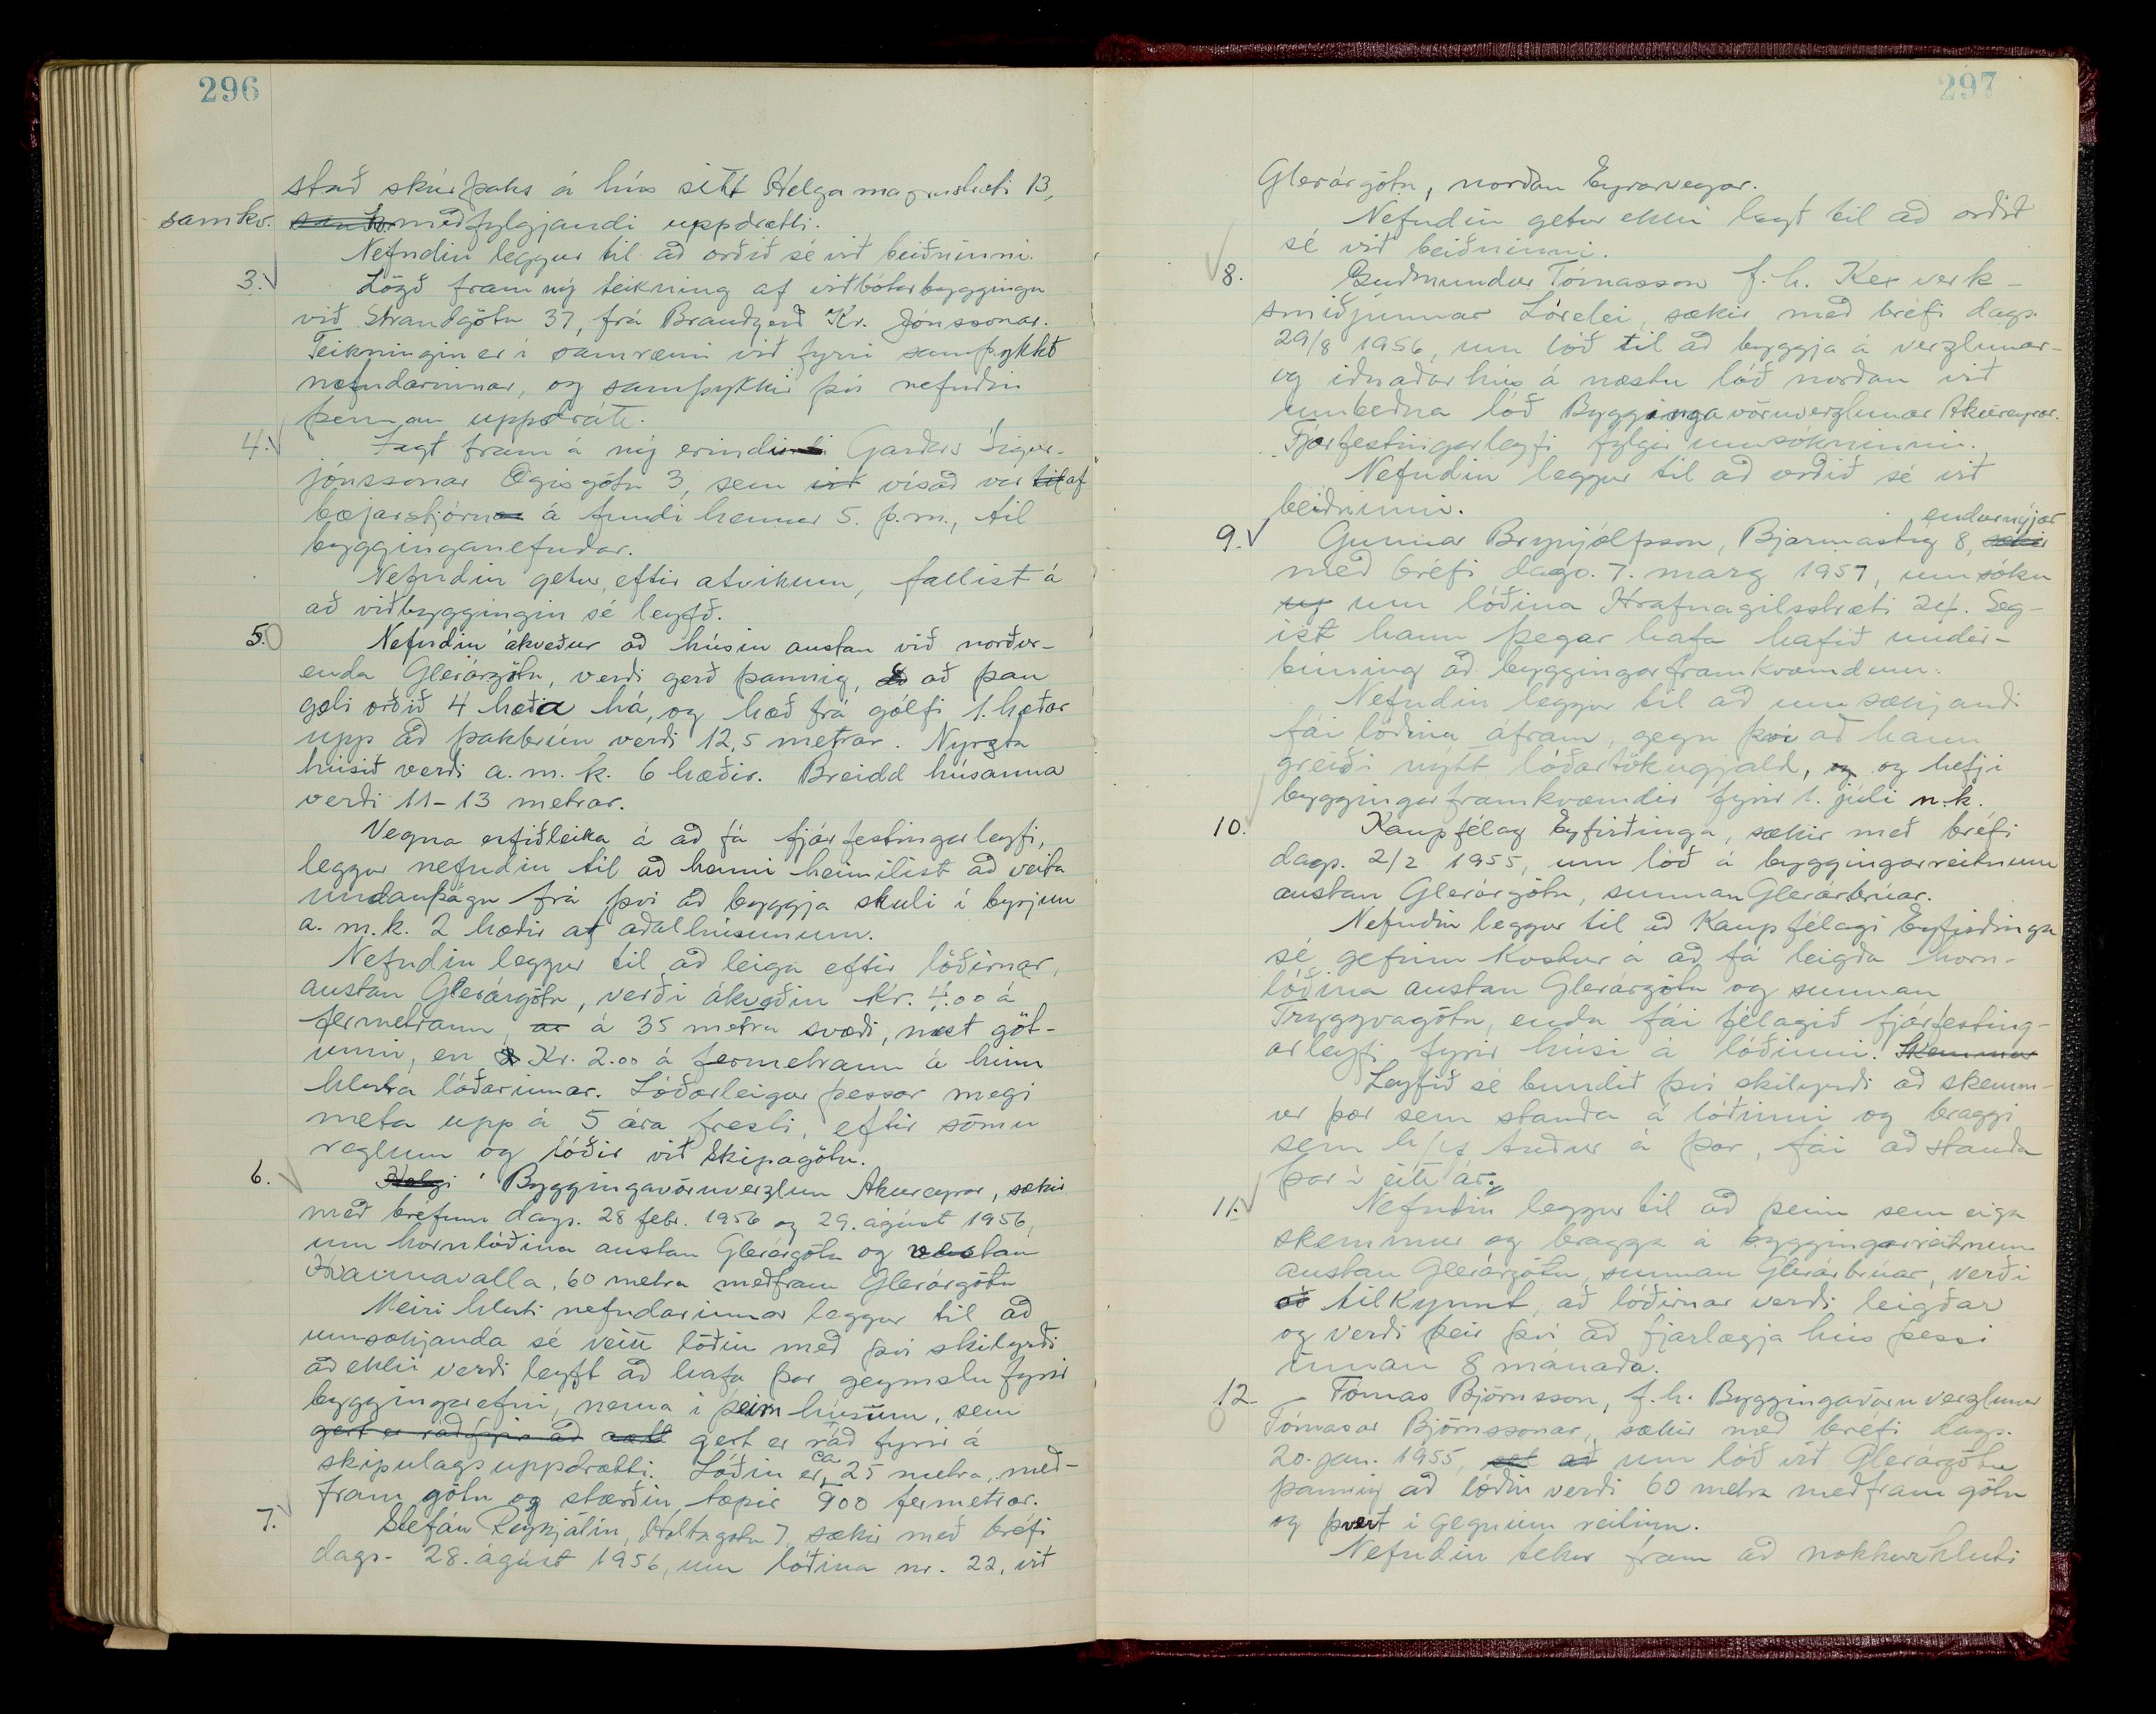 296
stað skúrþaks á hús sitt Helgamagrastræti 13,
samkv. meðfylgjandi uppdrætti.
Nefndin leggur til að orðið sé við beiðninni.
3. Lögð fram ný teikning af viðbótarbyggingu
við Strandgötu 37, frá Brandgerð Kr. Jónssonar.
Teikningin er í samræmi við fyrri samþykkt
nefndarinnar, og samþykkir því nefndin
þennan uppdrátt.
4. Lagt fram á ný erindi Garðars Sigur-
jónssonar Ægisgötu 3, sem vísað var af
bæjarstjórn á fundi hennar 5. þ.m., til
bygginganefndar.
Nefndin getur, eftir atvikum, fallist á
að viðbyggingin sé leyfð.
5. Nefndin ákveður að húsin austan við norður-
enda Glerárgötu, verði gerð þannig, að þau
geti orðið 4 hæða há, og hæð frá gólfi 1. hæðar
upp að þakbrún verði 12,5 metrar. Nyrzta
húsið verði a.m.k. 6 hæðir. Breidd húsanna
verði 11-13 metrar.
Vegna erfiðleika á að fá fjárfestingarleyfi,
leggur nefndin til að henni heimilist að veita
undanþágu frá því að byggja skuli í byrjun
a.m.k. 2 hæðir af aðalhúsunum.
Nefndin leggur til að leiga eftir lóðirnar,
austan Glerárgötu, verði ákveðin kr. 4.00 á
fermetrann, á 35 metra svæði, næst göt-
unni, en Kr. 2.00 á fermetrann á hinn
hluta lóðarinnar. Lóðarleigur þessar megi
meta upp á 5 ára fresti, eftir sömu
reglum og lóðir við Skipagötu.
6. Byggingavöruverzlun Akureyrar, sækir
með bréfum dags. 28 febr. 1956 og 29. ágúst 1956,
um hornlóðina austan Glerárgötu og vestan
Hvannavalla, 60 metra meðfram Glerárgötu
Meiri hluti nefndarinnar leggur til að
umsækjanda sé veitt lóðin með því skilyrði
að ekki verði leyft að hafa þar geymslu fyrir
byggingarefni, nema í þeim húsum, sem
gert er ráð fyrir á
skipulagsuppdrætti. Lóðin er ca 25 metra, með-
fram götu og stærðin tæpir 900 fermetrar.
7. Stefán Reykjalín, Holtagötu 7, sækir með bréfi
dags. 28. ágúst 1956, um lóðina nr. 22, við
297
Glerárgötu, norðan Eyrarvegar.
Nefndin getur ekki lagt til að orðið
sé við beiðninni.
8. Guðmundur Tómasson f.h. Kexverk-
smiðjunnar Lórelei, sækir með bréfi dags.
29/8 1956, um lóð til að byggja á verzlunar-
og iðnaðarhús á næstu lóð norðan við
umbeðna lóð Byggingavöruverzlunar Akureyrar.
Fjárfestingarleyfi fylgir umsókninni.
Nefndin leggur til að orðið sé við
beiðninni.
9. Gunnar Brynjólfsson, Bjarmastíg 8, endurnýjar
með bréfi dags. 7. marz 1957, umsókn
um lóðina Hrafnagilsstræti 24. Seg-
ist hann þegar hafa hafið undir-
búning að byggingarframkvæmdum.
Nefndin leggur til að umsækjandi
fái lóðina áfram, gegn því að hann
greiði nýtt lóðartökugjald, og hefji
byggingarframkvæmdir fyrir 1. júlí n.k.
10. Kaupfélag Eyfirðinga, sækir með bréfi
dags. 2/2 1955, um lóð á byggingarreitnum
austan Glerárgötu, sunnan Glerárbrúar.
Nefndin leggur til að Kaupfélagi Eyfirðinga
sé gefinn kostur á að fá leigða horn-
lóðina austan Glerárgötu og sunnan
Tryggvagötu, enda fái félagið fjárfesting-
arleyfi fyrir húsi á lóðinni.
Leyfið sé bundið því skilyrði að skemm-
ur þær sem standa á lóðinni og braggi
sem h/f Auður á þar, fái að standa
þar í eitt ár.
11. Nefndin leggur til að þeim sem eiga
skemmur og bragga á byggingarreitnum
austan Glerárgötu, sunnan Glerárbrúar, verði
tilkynnt, að lóðirnar verði leigðar
og verði þeir því að fjarlægja hús þessi
innan 8 mánaða.
12. Tómas Björnsson, f.h. Byggingavöruverzlunar
Tómasar Björnssonar, sækir með bréfi dags.
20. jan. 1955, um lóð við Glerárgötu
þannig að lóðin verði 60 metra meðfram götu
og þvert í gegnum reitinn.
Nefndin tekur fram að nokkur hluti